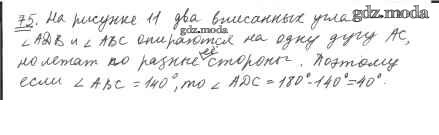 75. На рисунке 11 два вписанных угла
gdz.moda
∠ADB и ∠ABC опираются на одну дугу AC,
gdz.moda
но лежат по разные её стороны. Поэтому
если ∠ABC = 140°, то ∠ADC = 180° - 140° = 40°.